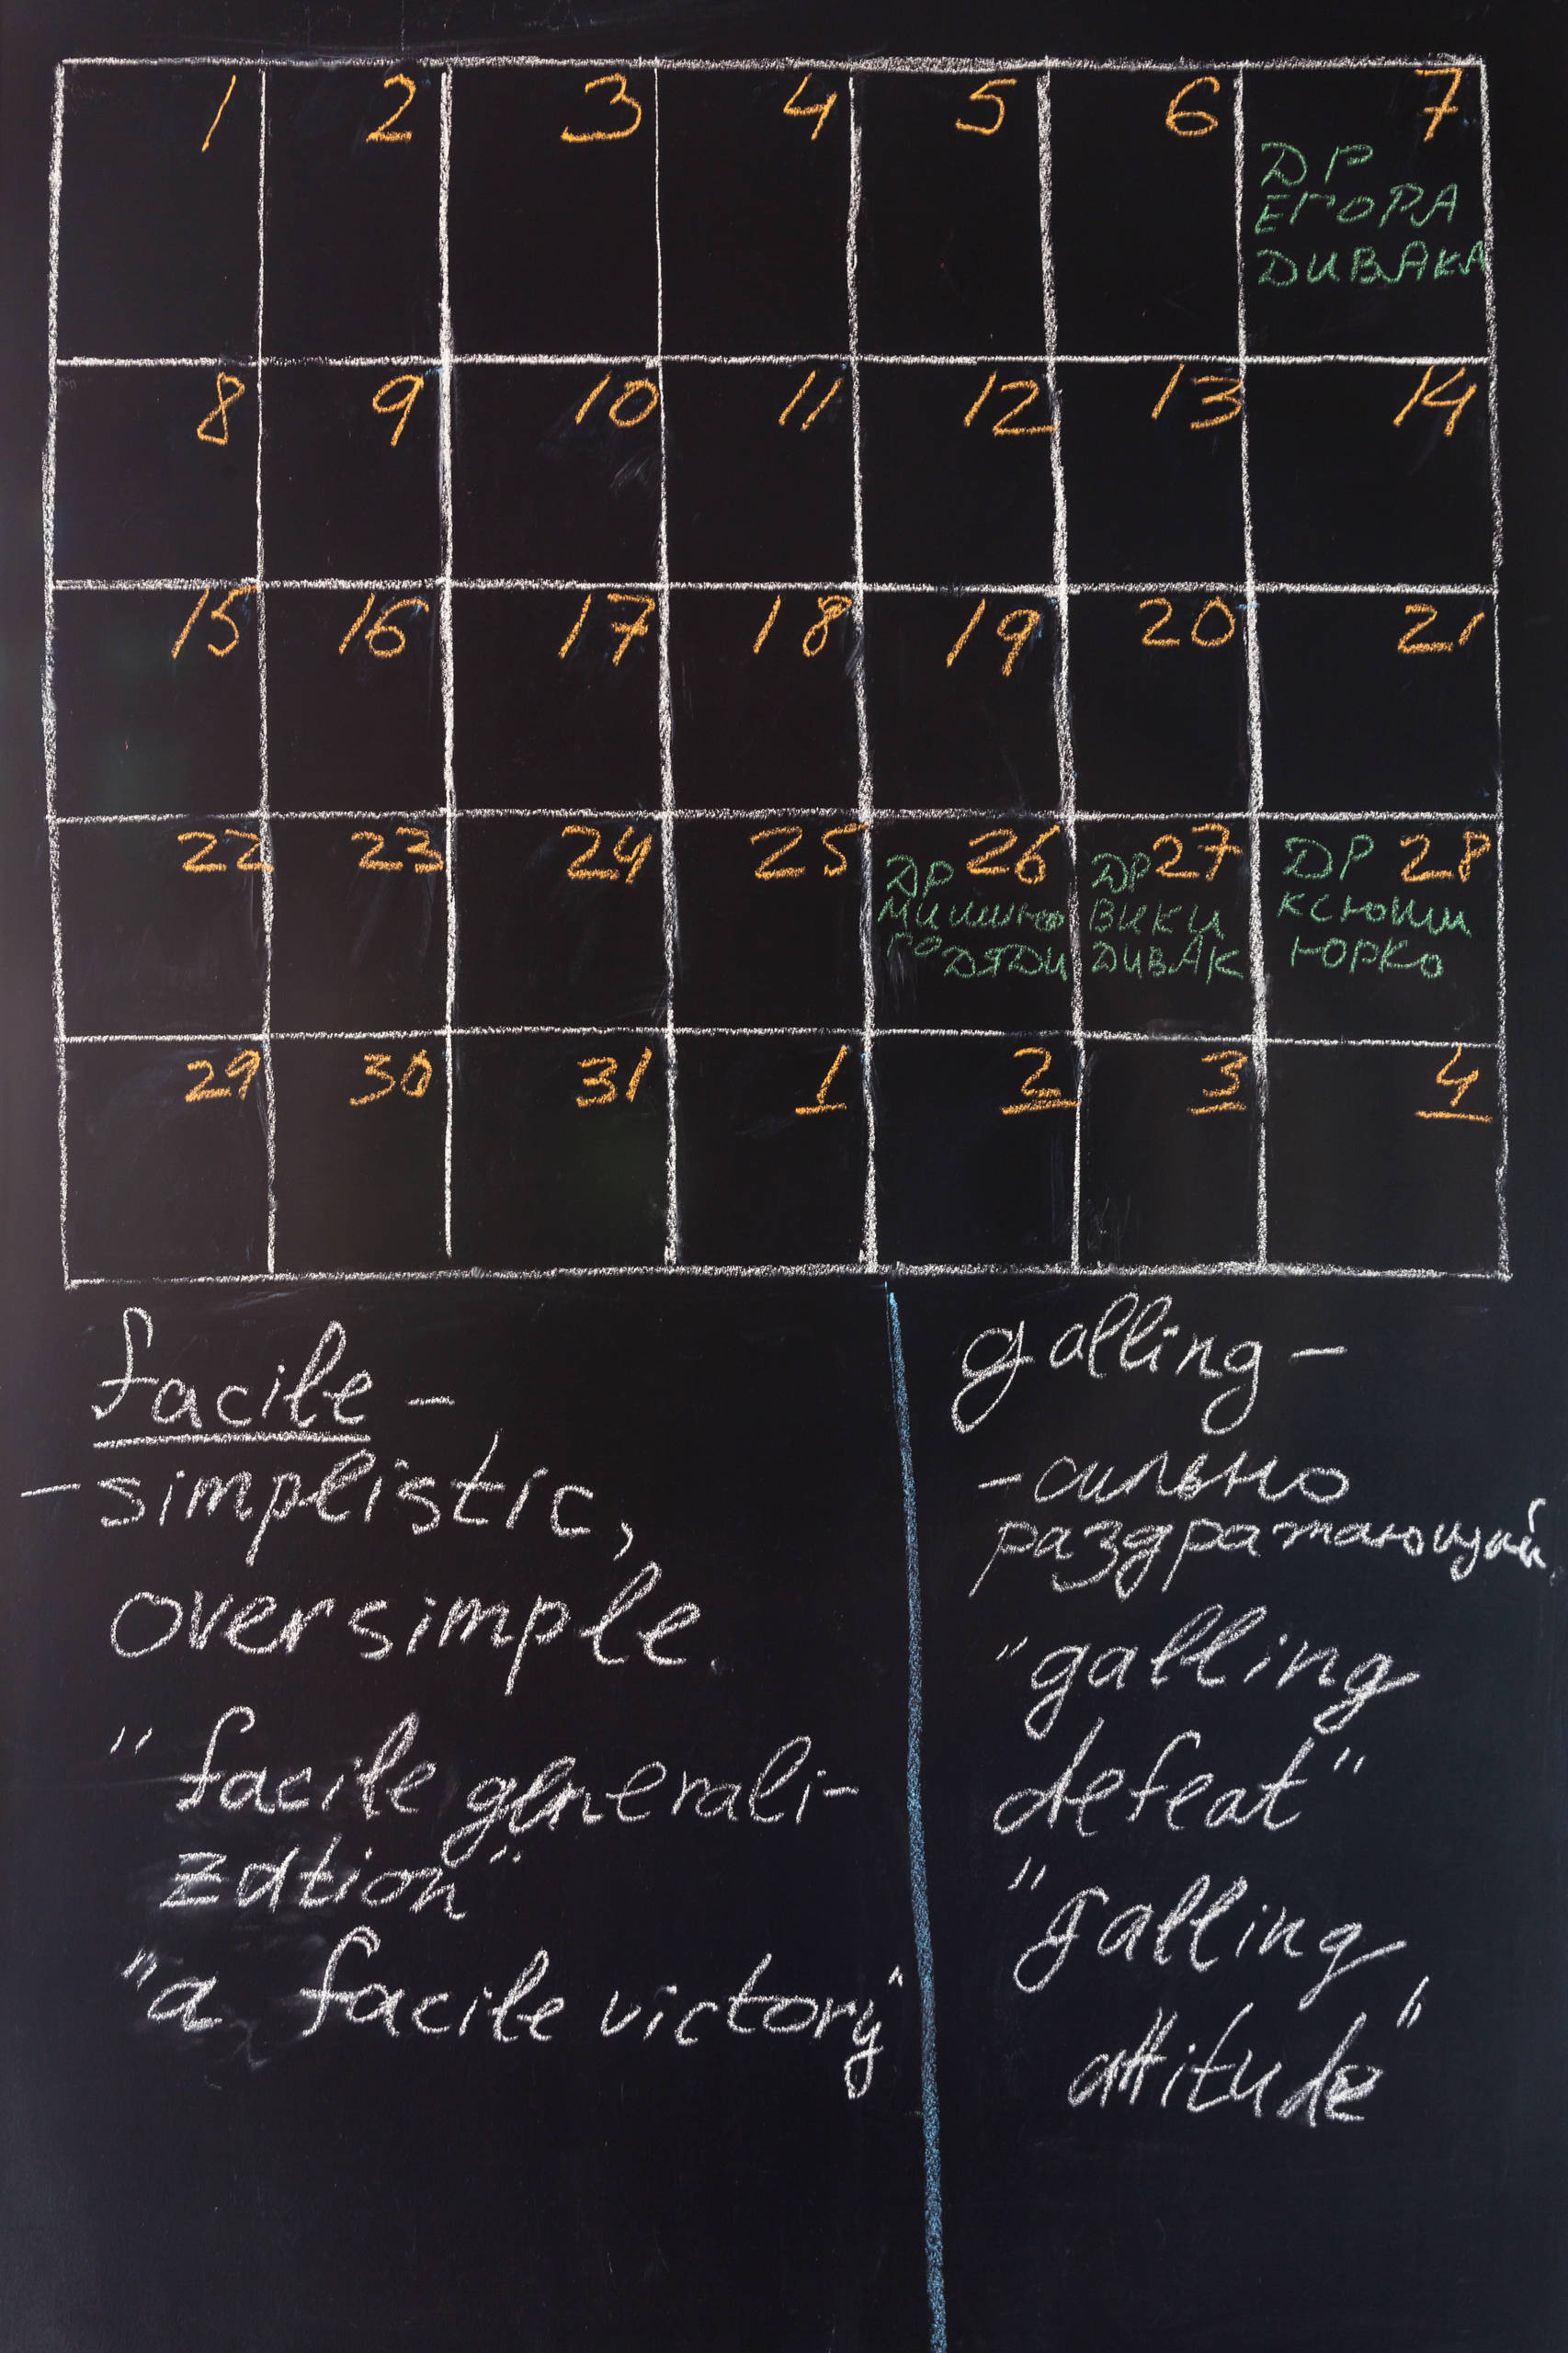 1 2 3 4 5 6 7
ДР
ЕГОРА
ДИВАКА
8 9 10 11 12 13 14
15 16 17 18 19 20 21
22 23 24 25 26 27 28
ДР
МИШИНО
ГО
ДЯДИ
ДР
ВИКИ
ДИВАК
ДР
КСЮШИ
ЮРКО
29 30 31 1 2 3 4
facile -
- simplistic,
oversimple.
"facile generali-
zation"
"a facile victory"
galling -
- сильно
раздражающий.
"galling
defeat"
"galling
attitude"